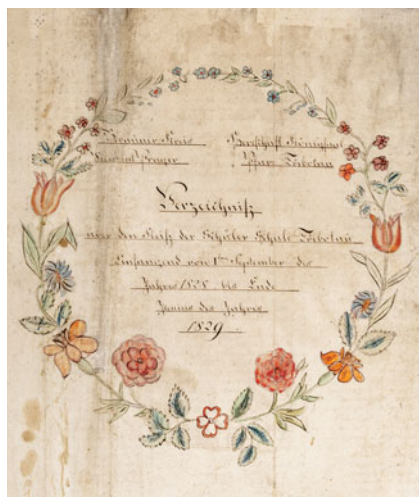 Brünner Kreis Herrschaft Königsfeld
Pfarr
Verzeichniß
über den Fleiß der Schüler Schule
Anfangend von 1ten September des
Jahres 1828 bis Ende
Junius des Jahres
1829